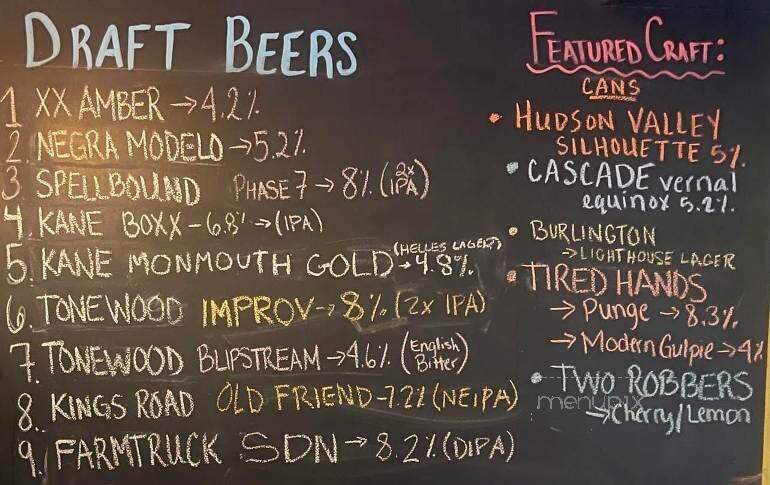 DRAFT BEERS
1 XX AMBER → 4.2%
2. NEGRA MODELO → 5.2%
3 SPELLBOUND PHASE 7 → 8% (2x IPA)
4. KANE BOXX - 6.8% → (IPA)
5. KANE MONMOUTH GOLD → 4.8% (HELLES LAGER?)
6. TONEWOOD IMPROV → 8% (2x IPA)
7. TONEWOOD BLIPSTREAM → 4.6% (English Bitter)
8. KINGS ROAD OLD FRIEND - 7.2% (NEIPA)
9. FARMTRUCK SDN → 8.2% (DIPA)
FEATURED CRAFT:
CANS
• HUDSON VALLEY
SILHOUETTE 5%
• CASCADE vernal
equinox 5.2%
• BURLINGTON
→ LIGHTHOUSE LAGER
• TIRED HANDS
→ Punge → 8.3%
→ Modern Gulpie → 4%
• TWO ROBBERS
→ Cherry/Lemon
menupix